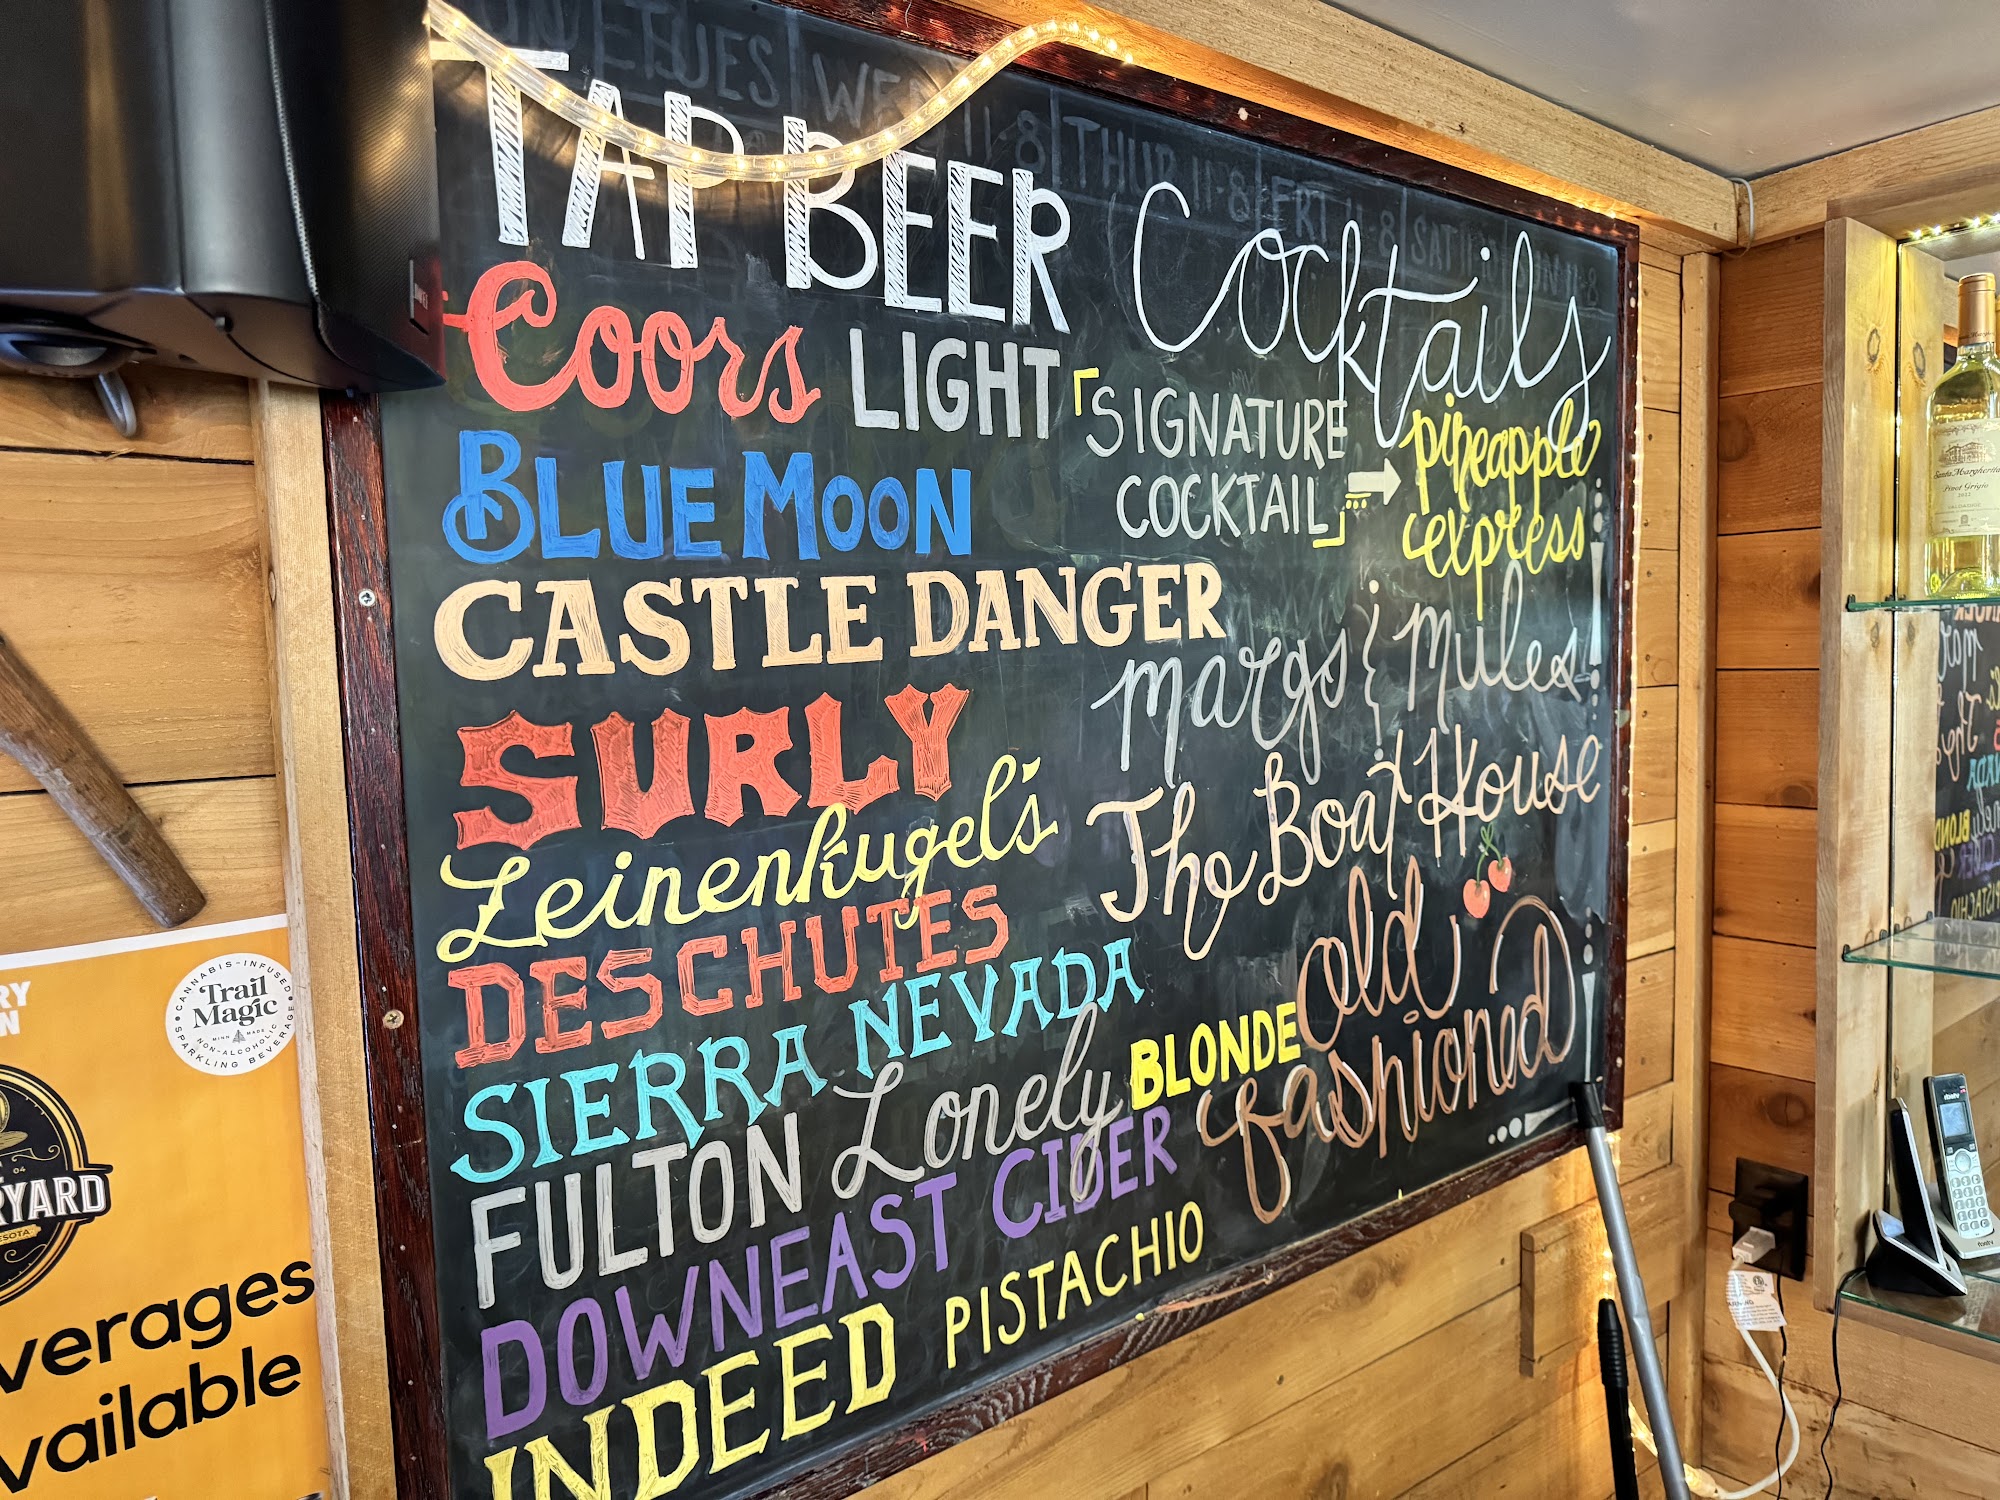 TAP BEER
Coors LIGHT
BLUE MOON
CASTLE DANGER
SURLY
Leinenkugel's
DESCHUTES
SIERRA NEVADA
FULTON Lonely BLONDE
DOWNEAST CIDER
INDEED PISTACHIO
Cocktails
「SIGNATURE
COCKTAIL」
pineapple
express
margs & mules
The Boat House
old
fashioned
TUES WED 11-8 THUR 11-8 FRI 11-8 SAT
CANNABIS-INFUSED
Trail
Magic
MINN MADE
NON-ALCOHOLIC
SPARKLING BEVERAGE
RY
N
04
RYARD
ESOTA
verages
vailable
Santa Margherita
Pinot Grigio